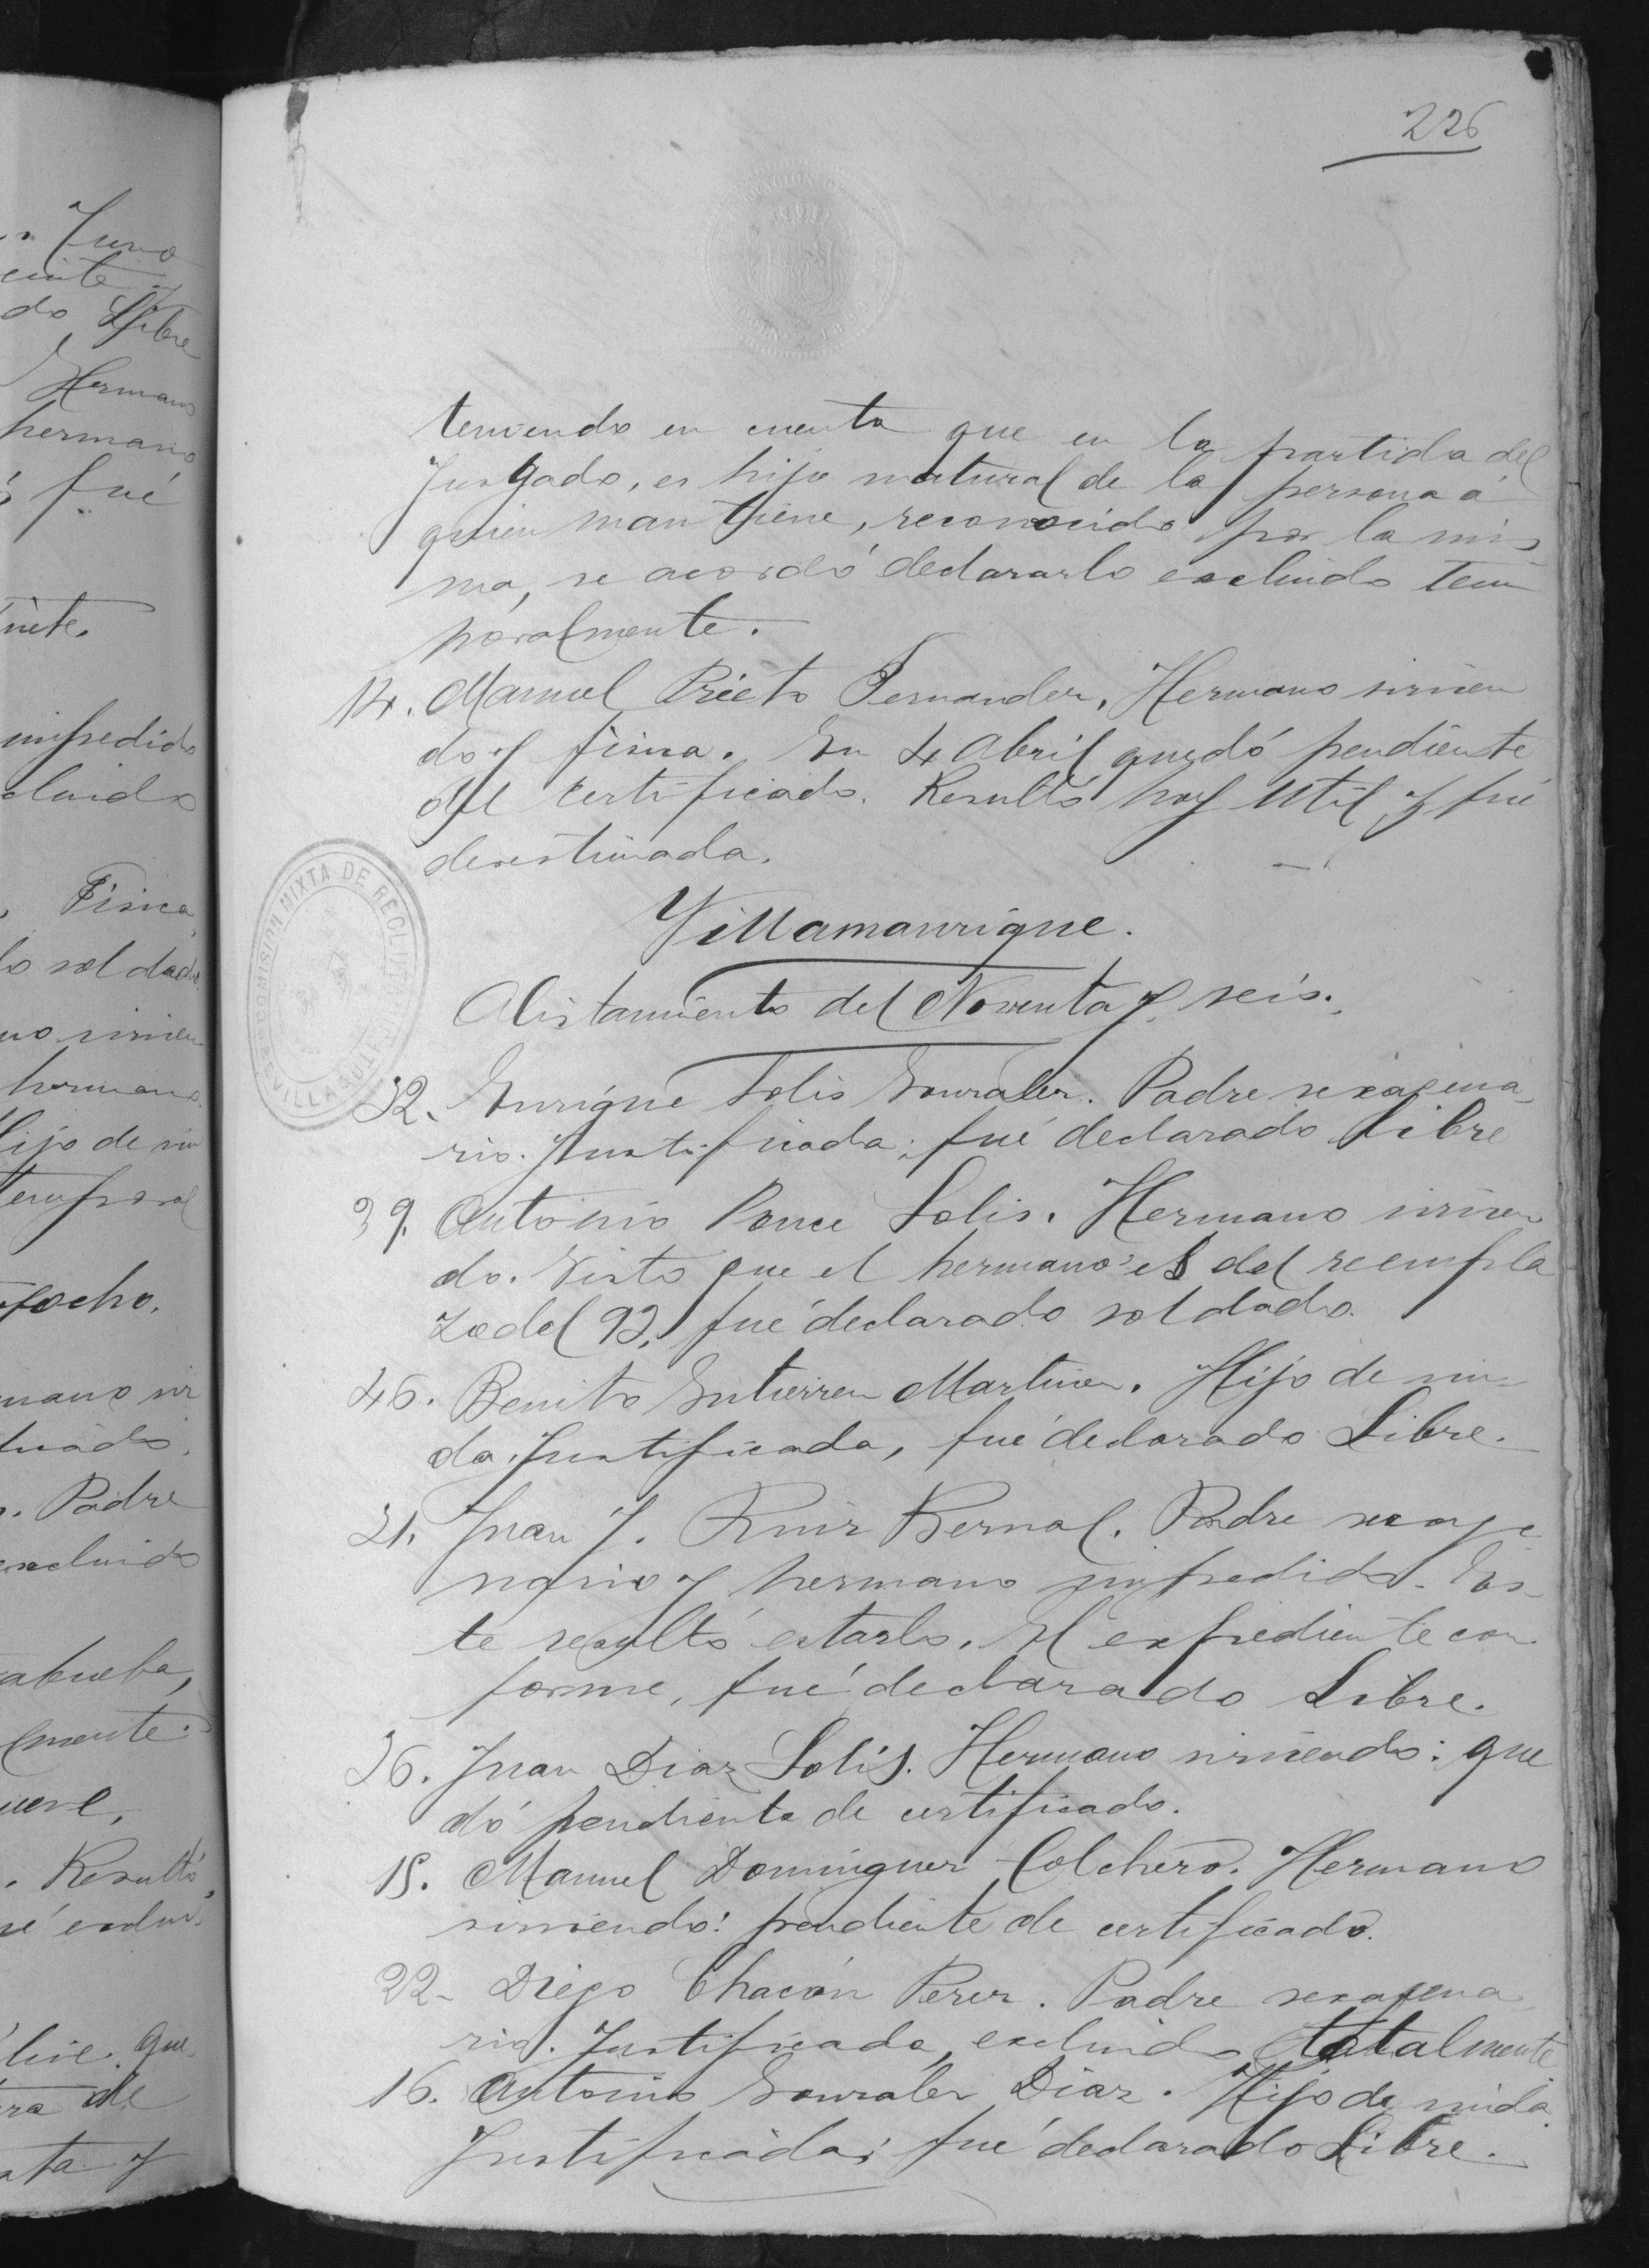 226
teniendo en cuenta que en la partida del
Juzgado, es hijo natural de la persona á
quien mantiene, reconocido por la mis
ma, se acordó declararlo excluido tem
poralmente.
14. Manuel Prieto Fernandez, Hermano sirvien
do y física. En 4 Abril quedó pendiente
del certificado. Resultó hoy util y fué
desestimada.
Villamanrique.
Alistamiento del Noventa y seis.
32. Enrique Solis Gonzalez. Padre sexagena
rio. Justificada; fué declarado Libre
39. Antonio Ponce Solis. Hermano sirvien
do. Visto que el hermano es del reempla
zo del 92, fué declarado soldado.
46. Benito Gutierrez Martinez. Hijo de viu
da. Justificada, fué declarado Libre.
31. Juan J. Ruiz Bernal. Padre sexage
nario y hermano impedido. Es
te resultó estarlo. El expediente con
forme, fué declarado Libre.
36. Juan Diaz Solis. Hermano sirviendo: que
dó pendiente de certificado.
15. Manuel Dominguez Colchero. Hermano
sirviendo: pendiente de certificado.
22- Diego Chacón Perez. Padre sexagena
rio. Justificada, excluido totalmente
16. Antonio Gonzalez Diaz. Hijo de viuda
Justificada; fué declarado Libre.
COMISION MIXTA DE RECLUTAMIENTO
SEVILLA